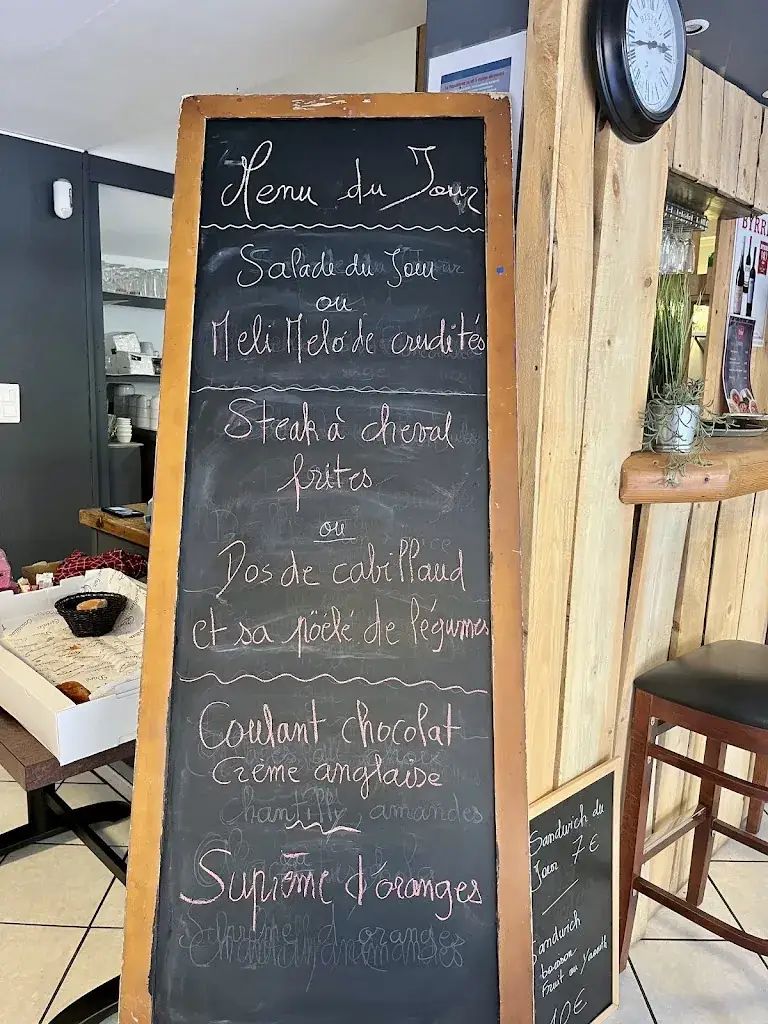 Menu du Jour
Salade du Jour
ou
Meli Melo de crudités
Steak à cheval
frites
ou
Dos de cabillaud
et sa pöélé de légumes
Coulant chocolat
Crème anglaise
chantilly, amandes
Suprême d'oranges
Sandwich du
Jour 7€
Sandwich
boisson
Fruit ou Yaourt
10€
BYRRH